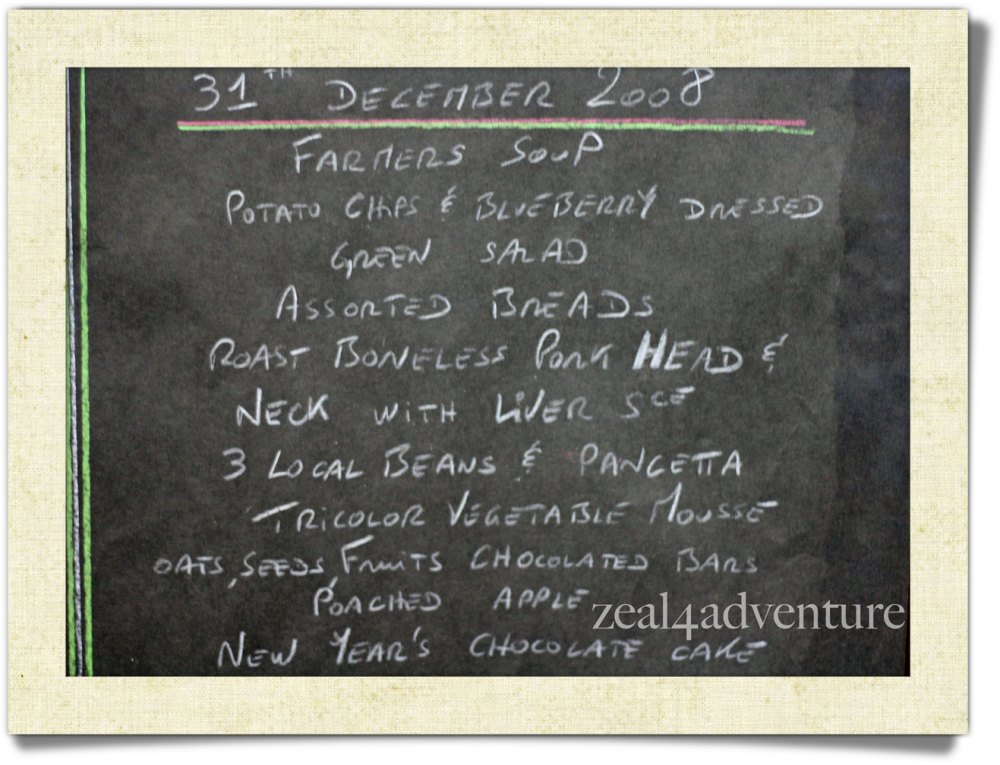 31TH DECEMBER 2008
FARMERS SOUP
POTATO CHIPS & BLUEBERRY DRESSED
GREEN SALAD
ASSORTED BREADS
ROAST BONELESS PORK HEAD &
NECK WITH LIVER SCE
3 LOCAL BEANS & PANCETTA
TRICOLOR VEGETABLE MOUSSE
OATS, SEEDS, FRUITS CHOCOLATED BARS
& POACHED APPLE
zeal4adventure
NEW YEAR'S CHOCOLATE CAKE